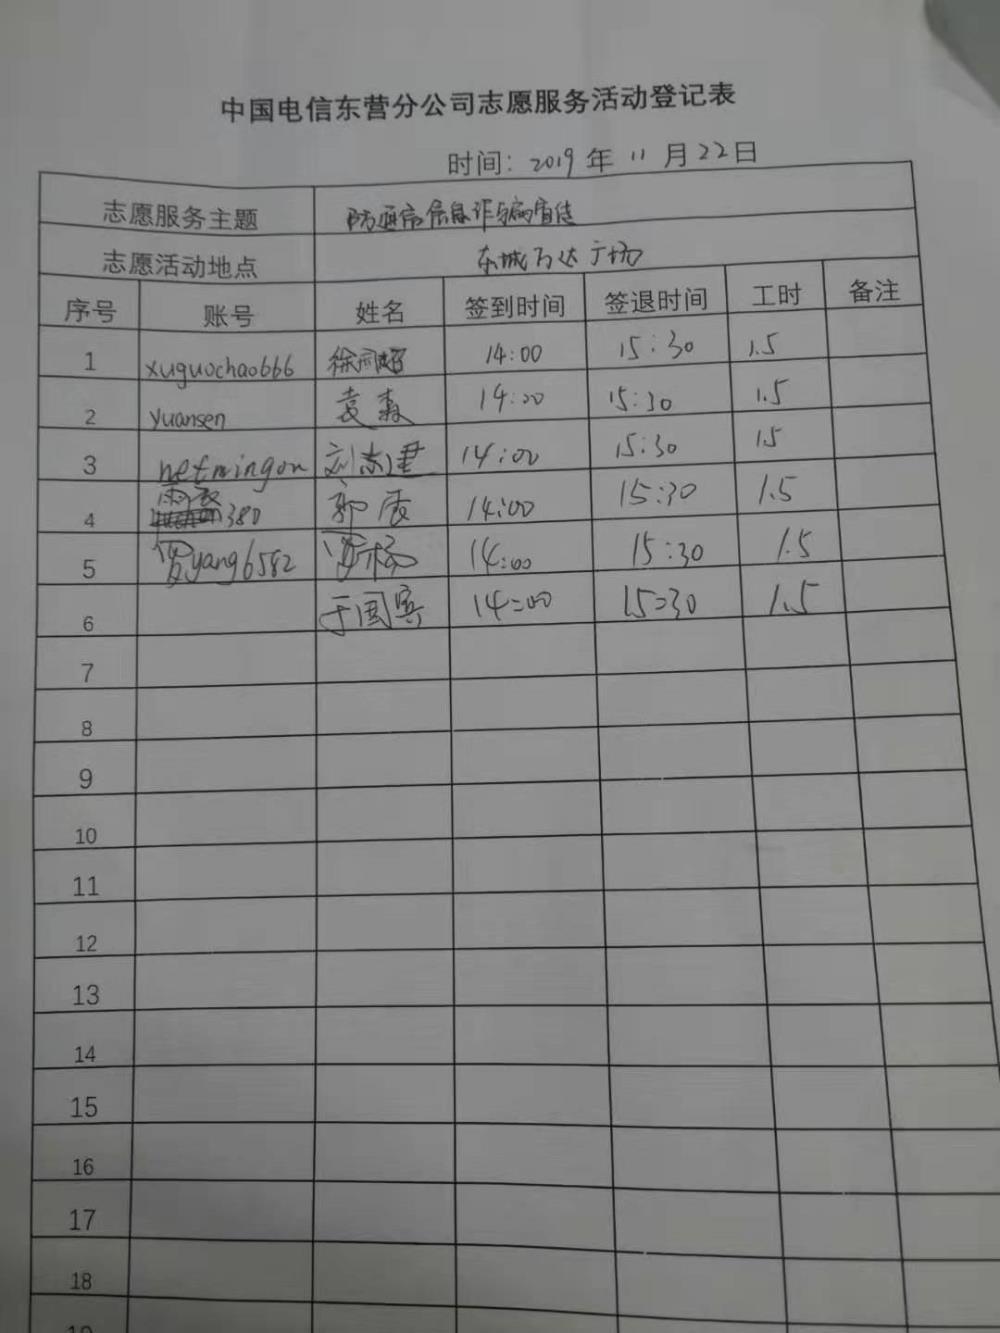 中国电信东营分公司志愿服务活动登记表
时间: 2019 年 11 月 22 日
志愿服务主题 防通信信息诈骗宣传
志愿活动地点 东城万达广场
序号 账号 姓名 签到时间 签退时间 工时 备注
1 xuguochao666 徐国超 14:00 15:30 1.5
2 yuansen 袁森 14:00 15:30 1.5
3 netmingon 刘志建 14:00 15:30 1.5
4 380 郭 14:00 15:30 1.5
5 yang6582 杨 14:00 15:30 1.5
6 于国宾 14:00 15:30 1.5
7
8
9
10
11
12
13
14
15
16
17
18